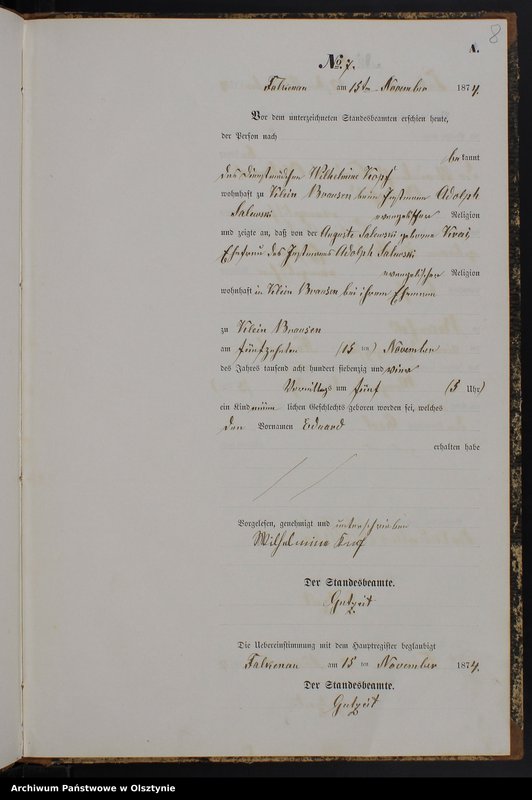 8
A.
No. 7.
Falkenau am 15ten November 1874.
Vor dem unterzeichneten Standesbeamten erschien heute,
der Person nach
bekannt
das Dienstmädchen Wilhelmine
wohnhaft zu Klein Bransen beim Instmann Adolph
Salewski evangelischer Religion
und zeigte an, daß von der Auguste Salewski geborene
Ehefrau des Instmanns Adolph Salewski
evangelischer Religion
wohnhaft in Klein Bransen bei ihrem Ehemann
zu Klein Bransen
am fünfzehnten (15 ten) November
des Jahres tausend acht hundert siebenzig und vier
Vormittags um fünf (5 Uhr)
ein Kind männlichen Geschlechts geboren worden sei, welches
den Vornamen Eduard
erhalten habe
Vorgelesen, genehmigt und unterschrieben
Wilhelmine
Der Standesbeamte.
Gutzeit
Die Uebereinstimmung mit dem Hauptregister beglaubigt
Falkenau am 15 ten November 1874.
Der Standesbeamte.
Gutzeit
Archiwum Państwowe w Olsztynie